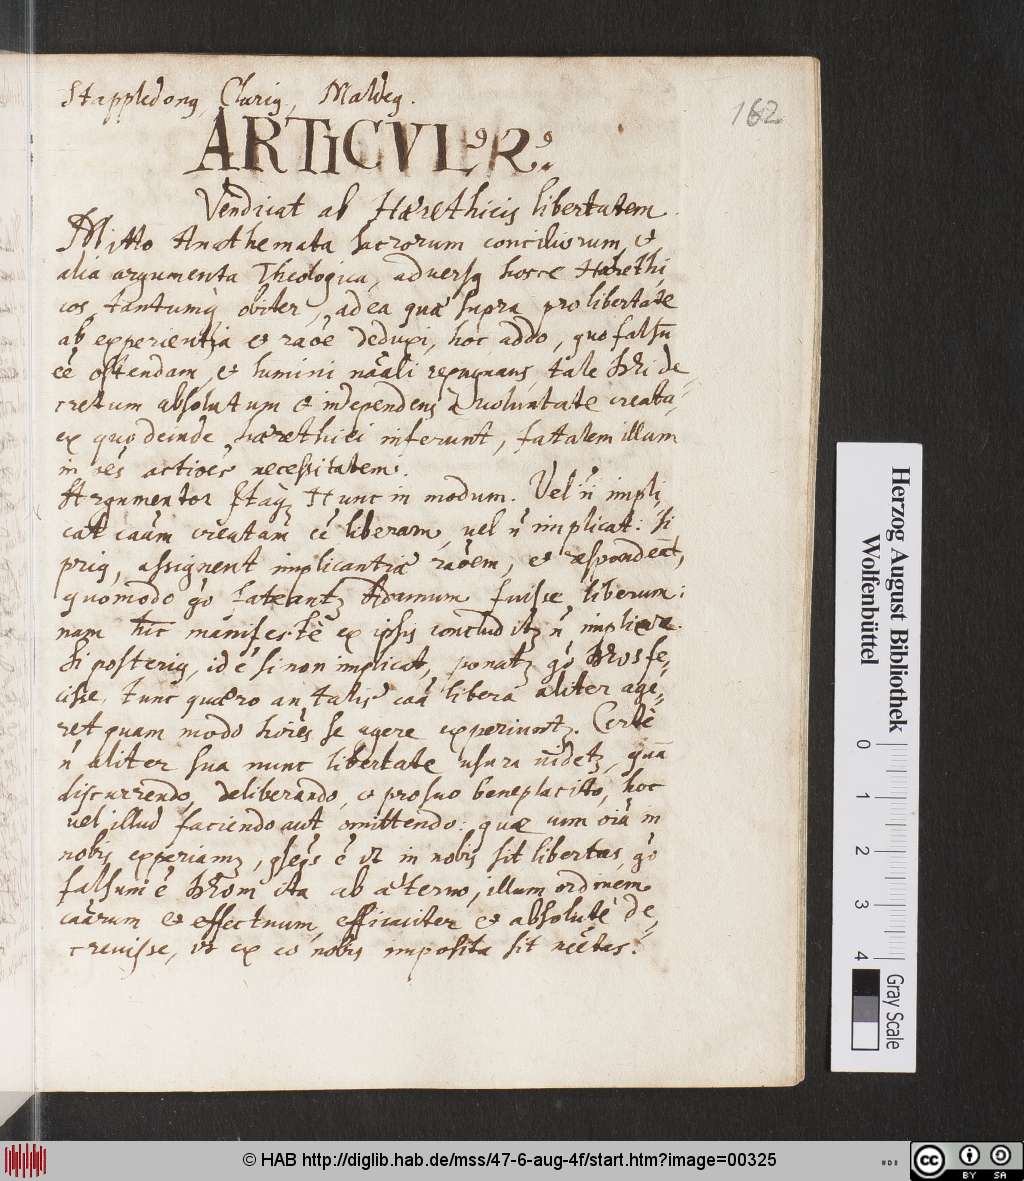 Stappledong, Clarig, Maldeg.
162
ARTICVLꝰ 2ꝰ.
Vendicat ab Hærethicis libertatem.
Mitto Anathemata sacrorum conciliorum, et
alia argumenta Theologica, adversꝗ hosce Hærethi,
cos, tantumꝗ obiter, ad ea quæ supra pro libertate
ab experientia et raõe deduxi, hoc addo, quo falsũ
eẽ ostendam, et lumini nãali repugnans, tale de,
cretum absolutum et independens à voluntate creata,
ex quo deinde hærethici inferunt, fatalem illam
in res actiões necessitatem.
Argumentor Itaqȝ Hunc in modum. Vel ñ impli,
cat caũm creatam eẽ liberam, vel ñ implicat: Si
prig, assignent implicantiæ raõem, et respondeãt,
quomodo go fateantȝ Adamum fuisse liberum:
nam hĩc manifestè ex ipsis concluditȝ ñ implicare.
Si posterig, id ẽ si non implicat, ponatȝ go fe,
cisse, tunc quæro an talis caã libera aliter age,
ret quam modo hoĩes se agere experiuntȝ. Certè
ñ aliter sua nunc libertate usura vĩdetȝ, quã
discurrendo, deliberando, et pro suo beneplacito, hoc
vel illud faciendo aut omittendo: quæ cum oĩa in
nobis experiamȝ, ẽ vt in nobis sit libertas, go
falsum ẽ ita ab æterno, illum ordinem
caãrum et effectuum, efficaciter et absolutè de,
crevisse, vt ex eo nobis imposita sit nẽctas.
Herzog August Bibliothek
Wolfenbüttel
0 1 2 3 4
Gray Scale
© HAB http://diglib.hab.de/mss/47-6-aug-4f/start.htm?image=00325
cc BY SA